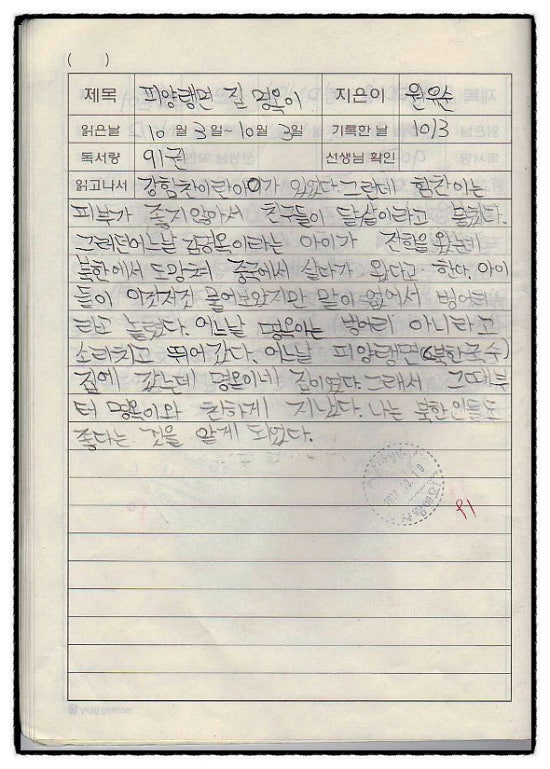 ( )
제목 피양랭면 집 명옥이 지은이 원유순
읽은날 10월 3일~10월 3일 기록한 날 10/3
독서량 91권 선생님 확인
읽고나서 강힘찬이란이가 있었다. 그런데 힘찬이는
피부가 좋지않아서 친구들이 닭살이라고 불렀다.
그러던어느날 김명옥이라는 아이가 전학을 왔는데
북한에서 도망쳐 중국에서 살다가 왔다고 한다. 아이
들이 이것저것 물어보았지만 말이 없어서 벙어리
라고 놀렸다. 어느날 명옥아는 벙어리 아니라고
소리치고 뛰어갔다. 어느날 피양랭면(북한국수)
집에 갔는데 명옥이네 집이었다. 그래서 그때부
터 명옥이와 친하게 지냈다. 나는 북한인들도
좋다는 것을 알게 되었다.
10. 10
91
morning glory